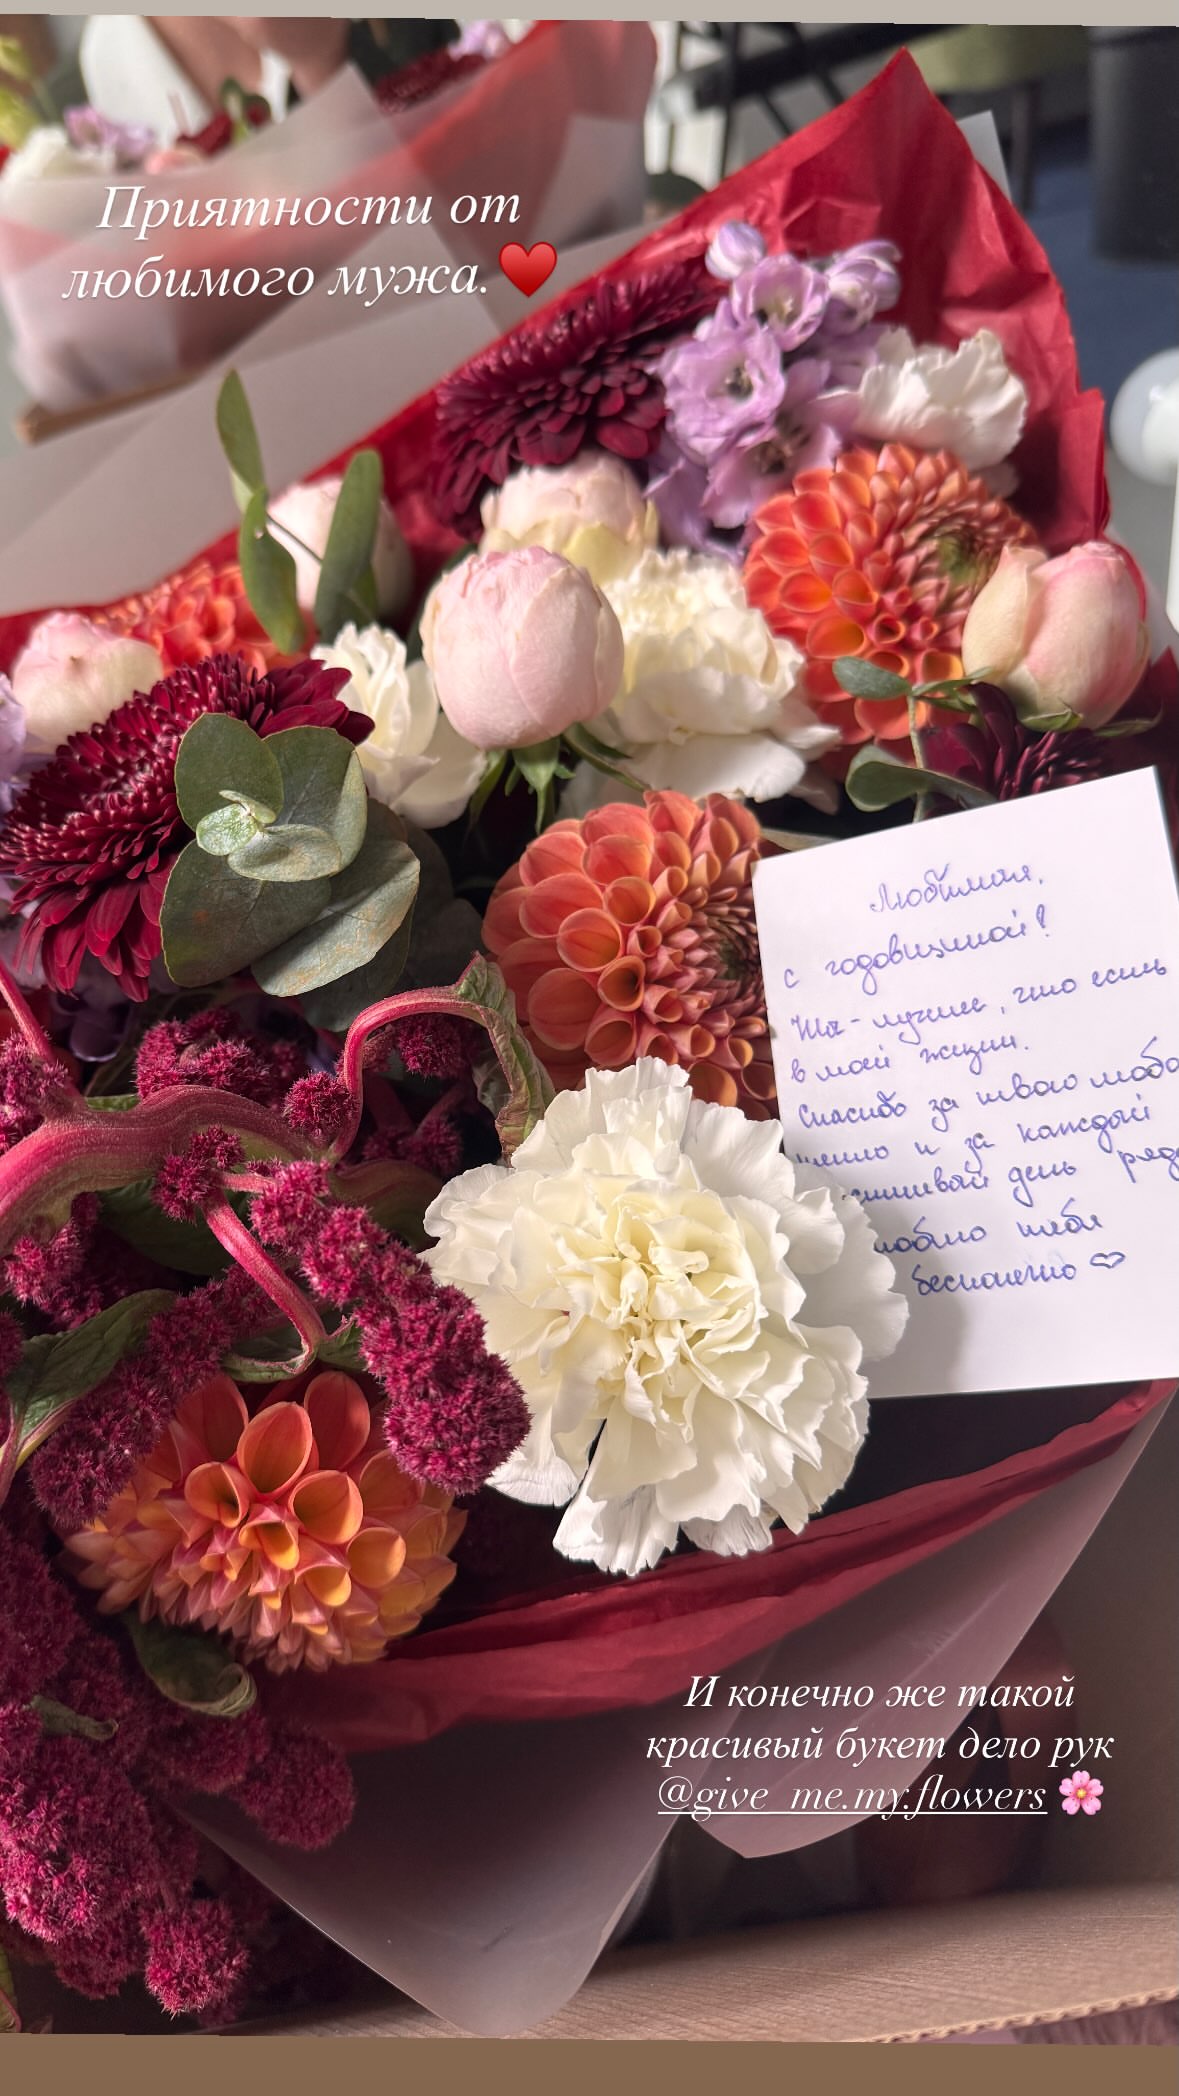 Приятности от
любимого мужа.❤️
Любимая,
с годовщиной!
Ты - лучшее, что есть
в моей жизни.
Спасибо за твою любо
тепло и за каждый
день
люблю тебя
бесконечно ♡
И конечно же такой
красивый букет дело рук
@give_me.my.flowers 🌸